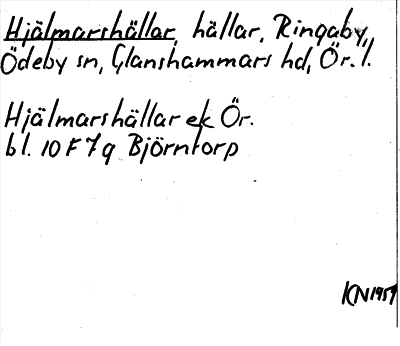 Hjälmarshällar, hällar, Ringaby,
Ödeby sn, Glanshammars hd, Ör. l.
Hjälmarshällar ek Ör.
bl. 10 F 7 g Björntorp
KN 1959